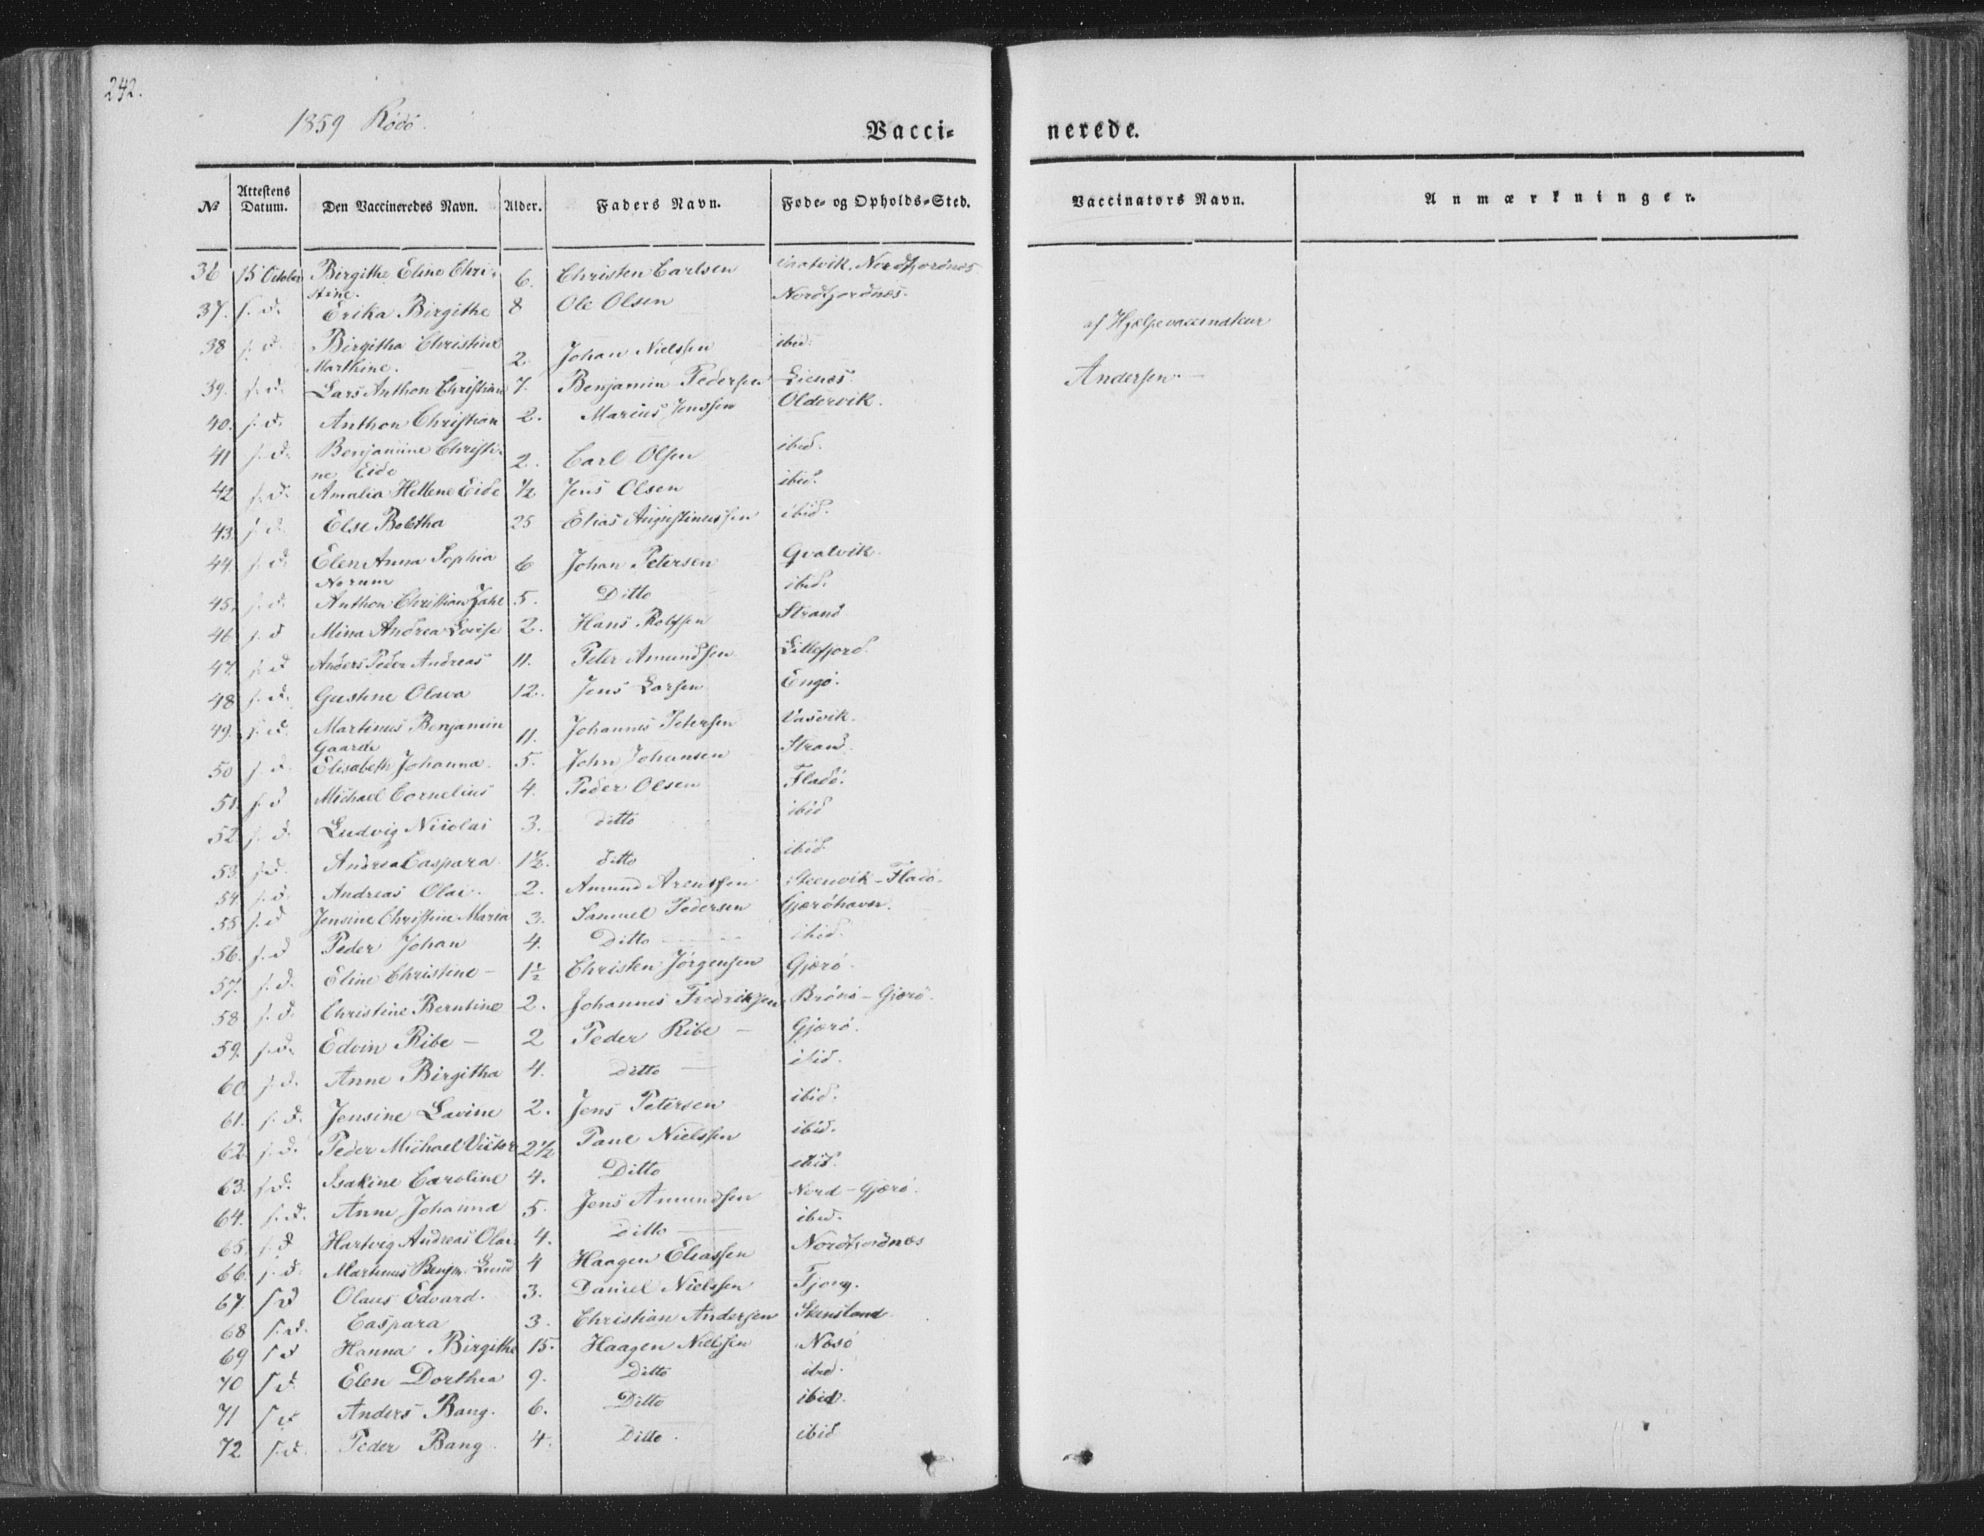 242.
1859 Rödö.
Vacci- nerede.
№ Attestens Datum. Den Vaccineredes Navn. Alder. Faders Navn. Føde- og Opholds-Sted. Vaccinators Navn. Anmærkninger.
36 15 October Birgithe Eline Chri- 6. Christen Carlsen Nordfjordnæs
stine.
37. s. d. Erika Birgithe 8 Ole Olsen Nordfjordnæs.
af Hjælpevaccinateur
38 s. d. Birgitha Christine 2. Johan Nielssen ibid.
Marthine.
39. s. d. Lars Anthon Christian 7. Benjamin Pedersen Lienæs. Andersen.
40. s. d. Anthon Christian 2. Marius Jenssen Oldervik.
41 s. d. Benjamine Christi- 2. Carl Olsen ibid.
ne Eide
42 s. d. Amalia Hellene Eide 1/2 Jens Olsen ibid.
43. s. d. Else Beletha 25 Elias Augustinussen ibid.
44. s. d. Elen Anna Sophia 6 Johan Petersen Qvalvik.
Norum
45. s. d. Anthon Christian Zahl 5. Ditto ibid.
46. s. d Mina Andrea Lovise 2. Hans Rolfsen Strand
47. s. d Anders Peder Andreas 11. Peter Amundsen Lillefjord.
48 s. d. Gustine Olava 12. Jens Larsen Engö.
49. s. d. Martinus Benjamin 11. Johannes Petersen Vasvik.
Gaarde
50 s. d. Elisabeth Johanna. 5. John Johansen Strand.
51. s. d Michael Cornelius 4. Peder Olsen Fladö.
52. s. d. Ludvig Nicolai 3. ditto ibid
53. s. d. Andrea Caspara 1 1/2. ditto ibid
54 s. d. Andreas Olai. 2. Amund Arentsen Steenvik-Fladö.
55. s. d Jensine Christine Maria 3. Samuel Pedersen Gjæröhavn.
56. s. d Peder Johan 4. Ditto ibid.
57. s. d. Eline Christine - 1 1/2 Christen Jörgensen Gjærö.
58 s. d. Christine Berntine 2. Johannes Fredriksen Brönö-Gjærö.
59. s. d. Edvin Ribe - 2 Peder Ribe - Gjærö.
60 s. d. Anne Birgitha 4. ditto ibid.
61. s. d. Jensine Lavine 2. Jens Petersen ibid.
62. s. d. Peder Michael Victor 2 1/2 Paul Nielssen ibid.
63. s. d. Isakine Caroline 4. Ditto ibid.
64. s. d. Anne Johanna 5. Jens Amundsen Nord-Gjærö.
65. s. d Hartvig Andreas Olai 4. ditto ibid.
66. s. d. Martinus Benjm. Lund 4 Haagen Eliassen Nordfjordnæs
67 s d Olaus Edvard. 3. Daniel Nielssen Tjong.
68 s. d. Caspara 3. Christian Andersen Stensland
69 s d Hanna Birgithe 15. Haagen Nielssen Næsö
70 s d. Elen Dorthea 9. Ditto ibid.
71 s d Anders Bang. 6. Ditto ibid.
72 s. d. Peder Bang. 4. Ditto. ibid